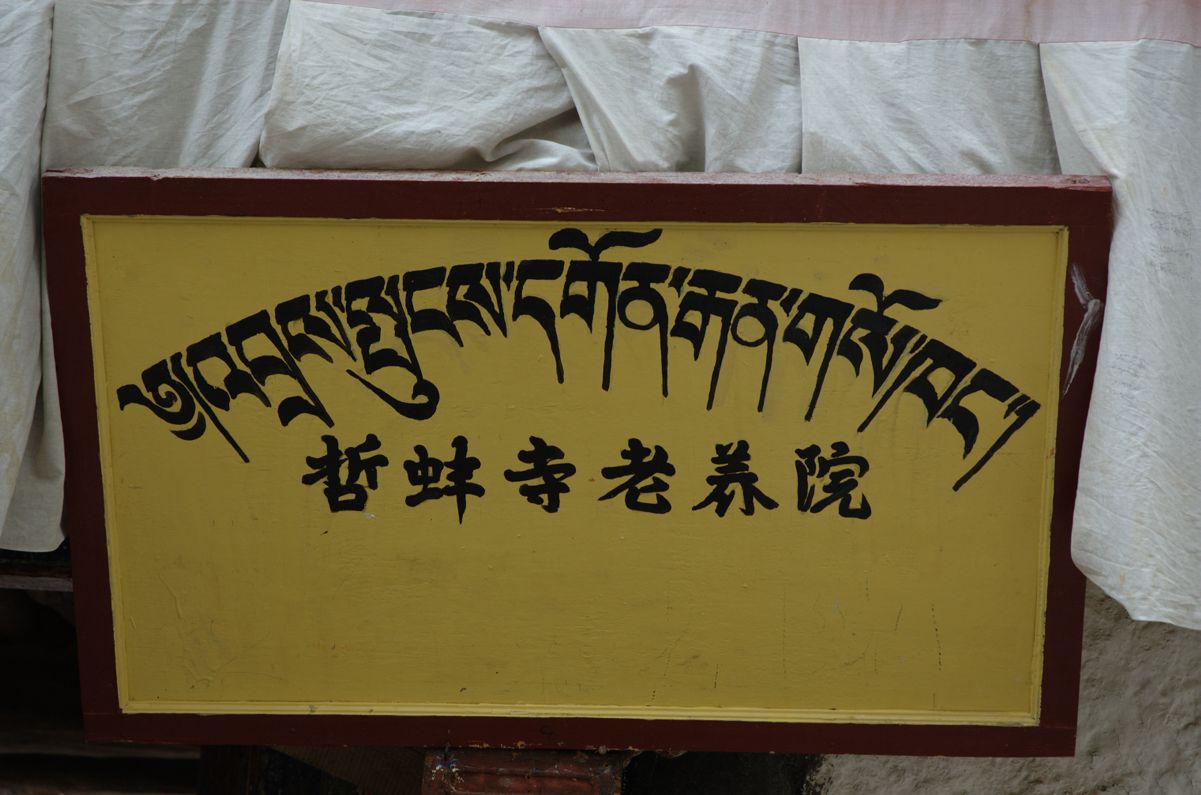 ༄།འབྲས་སྤུངས་དགོན་རྒན་གསོ་ཁང་།
哲蚌寺老养院